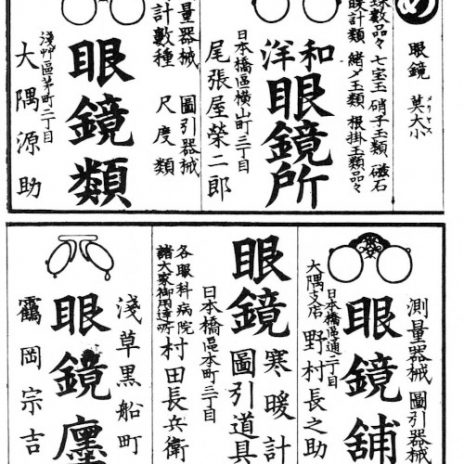 め
眼鏡
莫大小
メリヤス
球數品々 七宝玉 硝子玉類 磁石
暖計類 緒〆玉類 根掛玉類品々
和洋
眼鏡所
日本橋區横山町三丁目
尾張屋榮二郎
量器械 圖引器械
計數種 尺度類
眼鏡類
淺艸區茅町二丁目
大隅源助
測量器械 圖引器械
眼鏡舗
日本橋區通二丁目
大隅支店 野村長之助
寒暖計
眼鏡
圖引道具
日本橋區本町三丁目
各眼科病院
諸大家御用達所
村田長兵衛
淺草黒船町
眼鏡
鶴岡宗吉